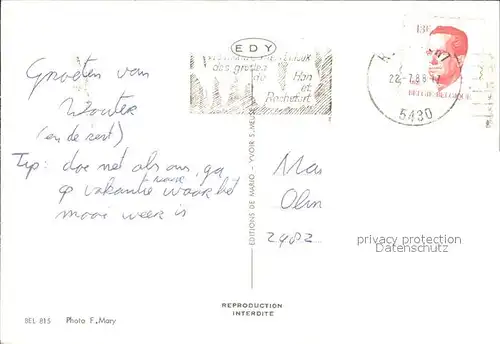 Groeten van
Wouter
(en de rest)
Tip: doe net als ons, ga
op vakantie waar het
mooi weer is
EDY
des grottes
de Han
et
Rochefort
13F
22-7.88
BELGIE-BELGIQUE
5430
EDITIONS DE MARIO - YVOIR S/MEUSE
Olm
2982
privacy protection
DanskeVykort.dk
REPRODUCTION
INTERDITE
BEL 815 Photo F. Mary